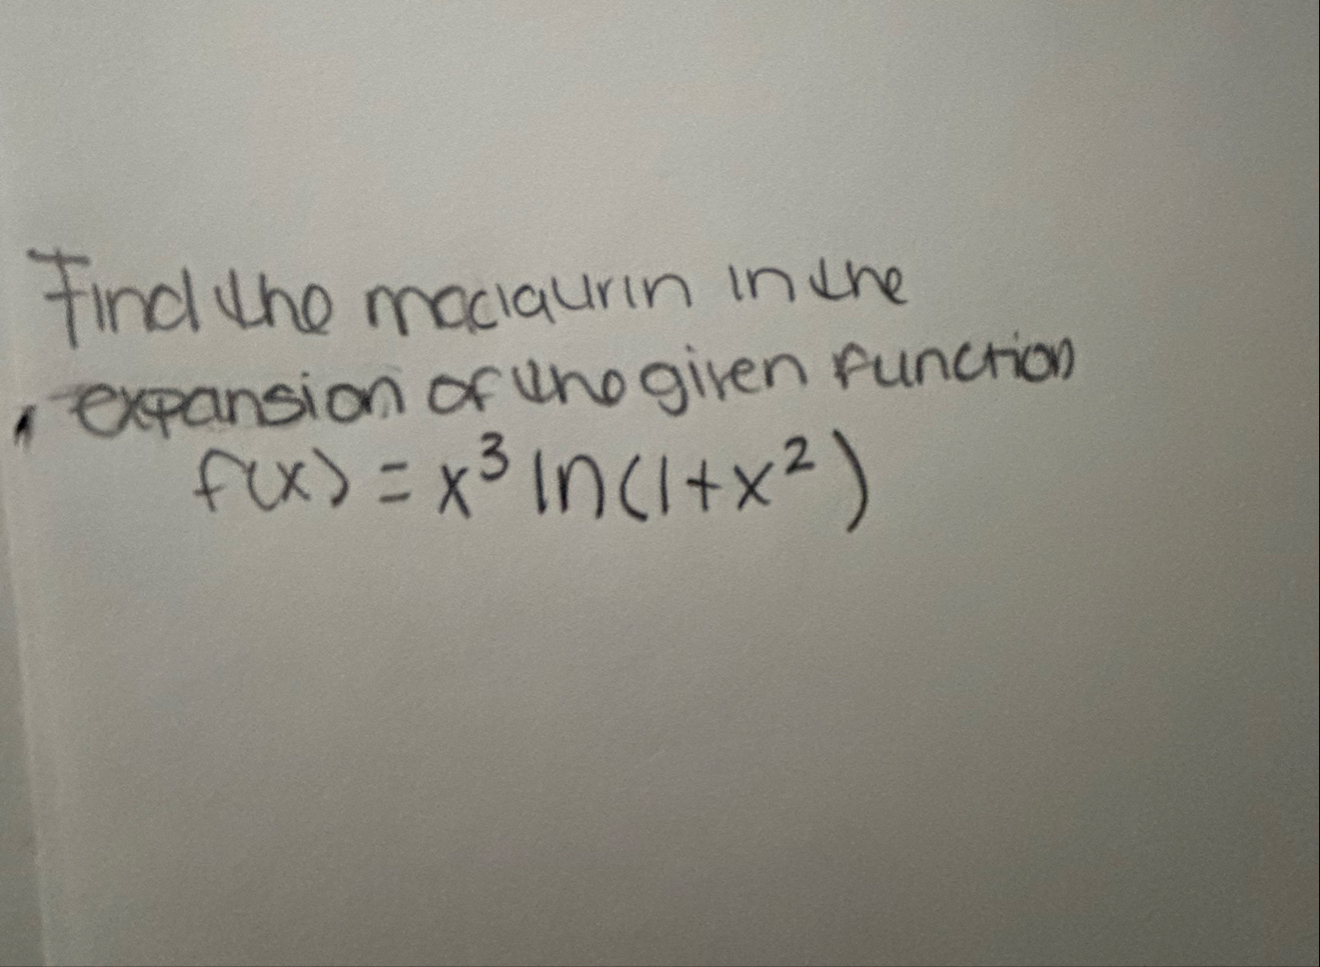 Find the maclaurin in the
expansion of the given function
f(x) = x³ ln(1+x²)